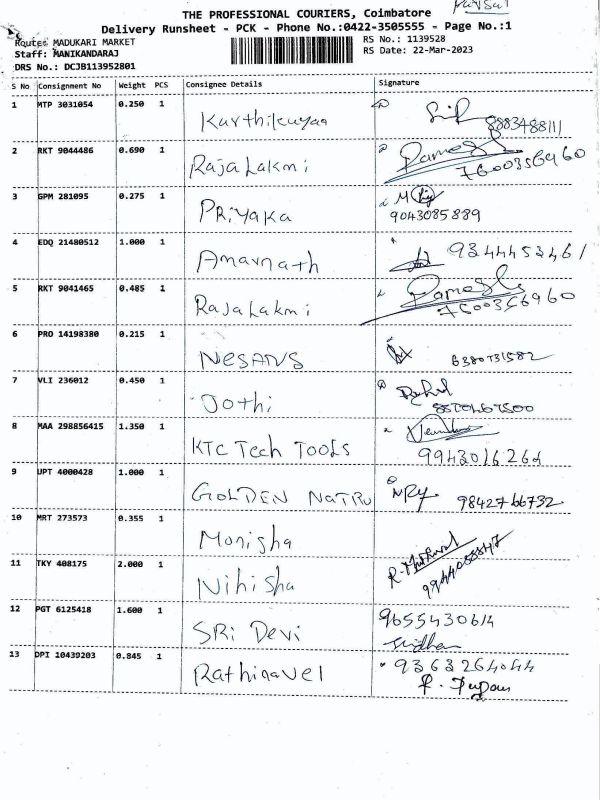 THE PROFESSIONAL COURIERS, Coimbatore
Delivery Runsheet - PCK - Phone No.:0422-3505555 - Page No.:1
Route: MADUKARI MARKET
RS No.: 1139528
Staff: MANIKANDARAJ
RS Date: 22-Mar-2023
DRS No.: DCJB113952801
S No Consignment No Weight PCS Consignee Details Signature
1 MTP 3031054 0.250 1
8883488111
2 RKT 9044486 0.690 1 RajaLakmi
7600356960
3 GPM 281095 0.275 1 PRiyaKa
9043085889
4 EDQ 21480512 1.000 1 Amarnath 9344453461
5 RKT 9041465 0.485 1 RajaLakmi
7600356960
6 PRO 14198380 0.215 1 NESANS 6380731582
7 VLI 236012 0.450 1 Jothi
8 MAA 298856415 1.350 1 KTC Tech Tools
9943016262
9 UPT 4000428 1.000 1 GOLDEN NATRU 9842766732
10 MRT 273573 0.355 1 Monisha
11 TKY 408175 2.000 1 Nihisha
12 PGT 6125418 1.600 1 SRi Devi
9655430614
Sridhar
13 DPI 10439203 0.845 1 Rathinavel 9363264044